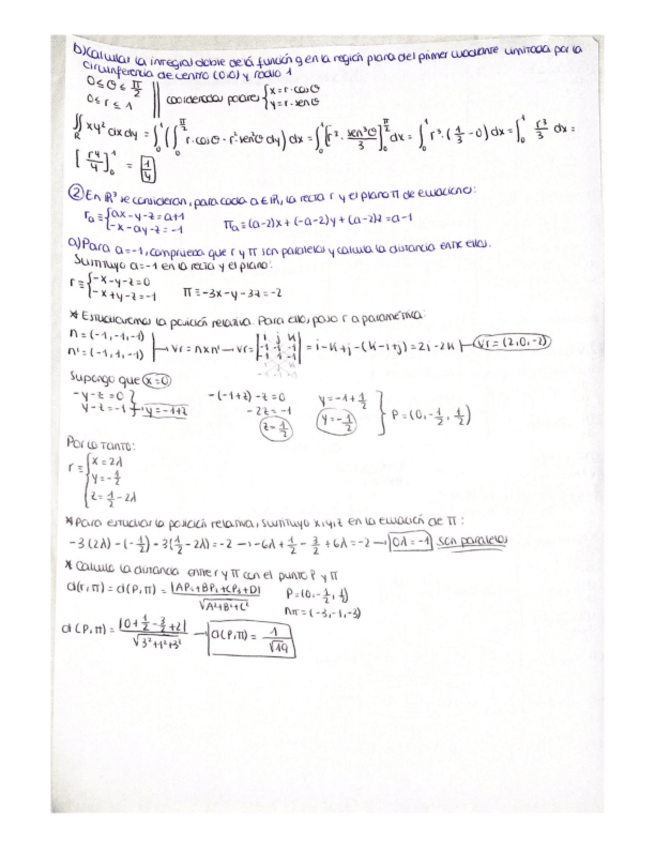 b) Calcular la integral doble de la función g en la región plana del primer cuadrante limitada por la
circunferencia de centro (0,0) y radio 1
0 ≤ θ ≤ π/2
0 ≤ r ≤ 1 || coordenadas polares { x = r·cosθ
y = r·senθ
∬_R xy² dxdy = ∫₀¹ ( ∫₀^{π/2} r·cosθ · r²sen²θ dy ) dx = ∫₀¹ [ r³ · sen³θ/3 ]₀^{π/2} dx = ∫₀¹ r³ · (1/3 - 0) dx = ∫₀¹ r³/3 dx =
[ r⁴/4 ]₀¹ = 1/4
② En R³ se consideran, para cada a∈R, la recta r y el plano π de ecuaciones:
ra ≡ { ax-y-z = a+1
-x-ay-z = -1
πa ≡ (a-2)x + (-a-2)y + (a-2)z = a-1
a) Para a=-1, comprueba que r y π son paralelos y calcula la distancia entre ellos.
Sustituyo a=-1 en la recta y el plano:
r ≡ { -x-y-z=0
-x+y-z=-1
π ≡ -3x-y-3z=-2
* Estudiaremos la posición relativa. Para ello, paso r a paramétrica:
n = (-1,-1,-1)
n' = (-1,1,-1) → vr = n×n' → vr = | i j k
-1 -1 -1
-1 1 -1 | = i-k+j-(k-i+j) = 2i-2k → vr = (2,0,-2)
Supongo que x=0
-y-z=0
y-z=-1 → y=-1+z
-(-1+z)-z=0
-2z=-1
z=1/2
y=-1+1/2
y=-1/2
} P = (0, -1/2, 1/2)
Por lo tanto:
r ≡ { x = 2λ
y = -1/2
z = 1/2 - 2λ
* Para estudiar la posición relativa, sustituyo x,y,z en la ecuación de π:
-3(2λ) - (-1/2) - 3(1/2 - 2λ) = -2 → -6λ + 1/2 - 3/2 + 6λ = -2 → 0λ = -1 son paralelos
* Calculo la distancia entre r y π con el punto P y π
d(r,π) = d(P,π) = |AP₁+BP₂+CP₃+D| / √(A²+B²+C²)
P = (0, -1/2, 1/2)
nπ = (-3,-1,-3)
d(P,π) = |0 + 1/2 - 3/2 + 2| / √(3²+1²+3²) → d(P,π) = 1/√19